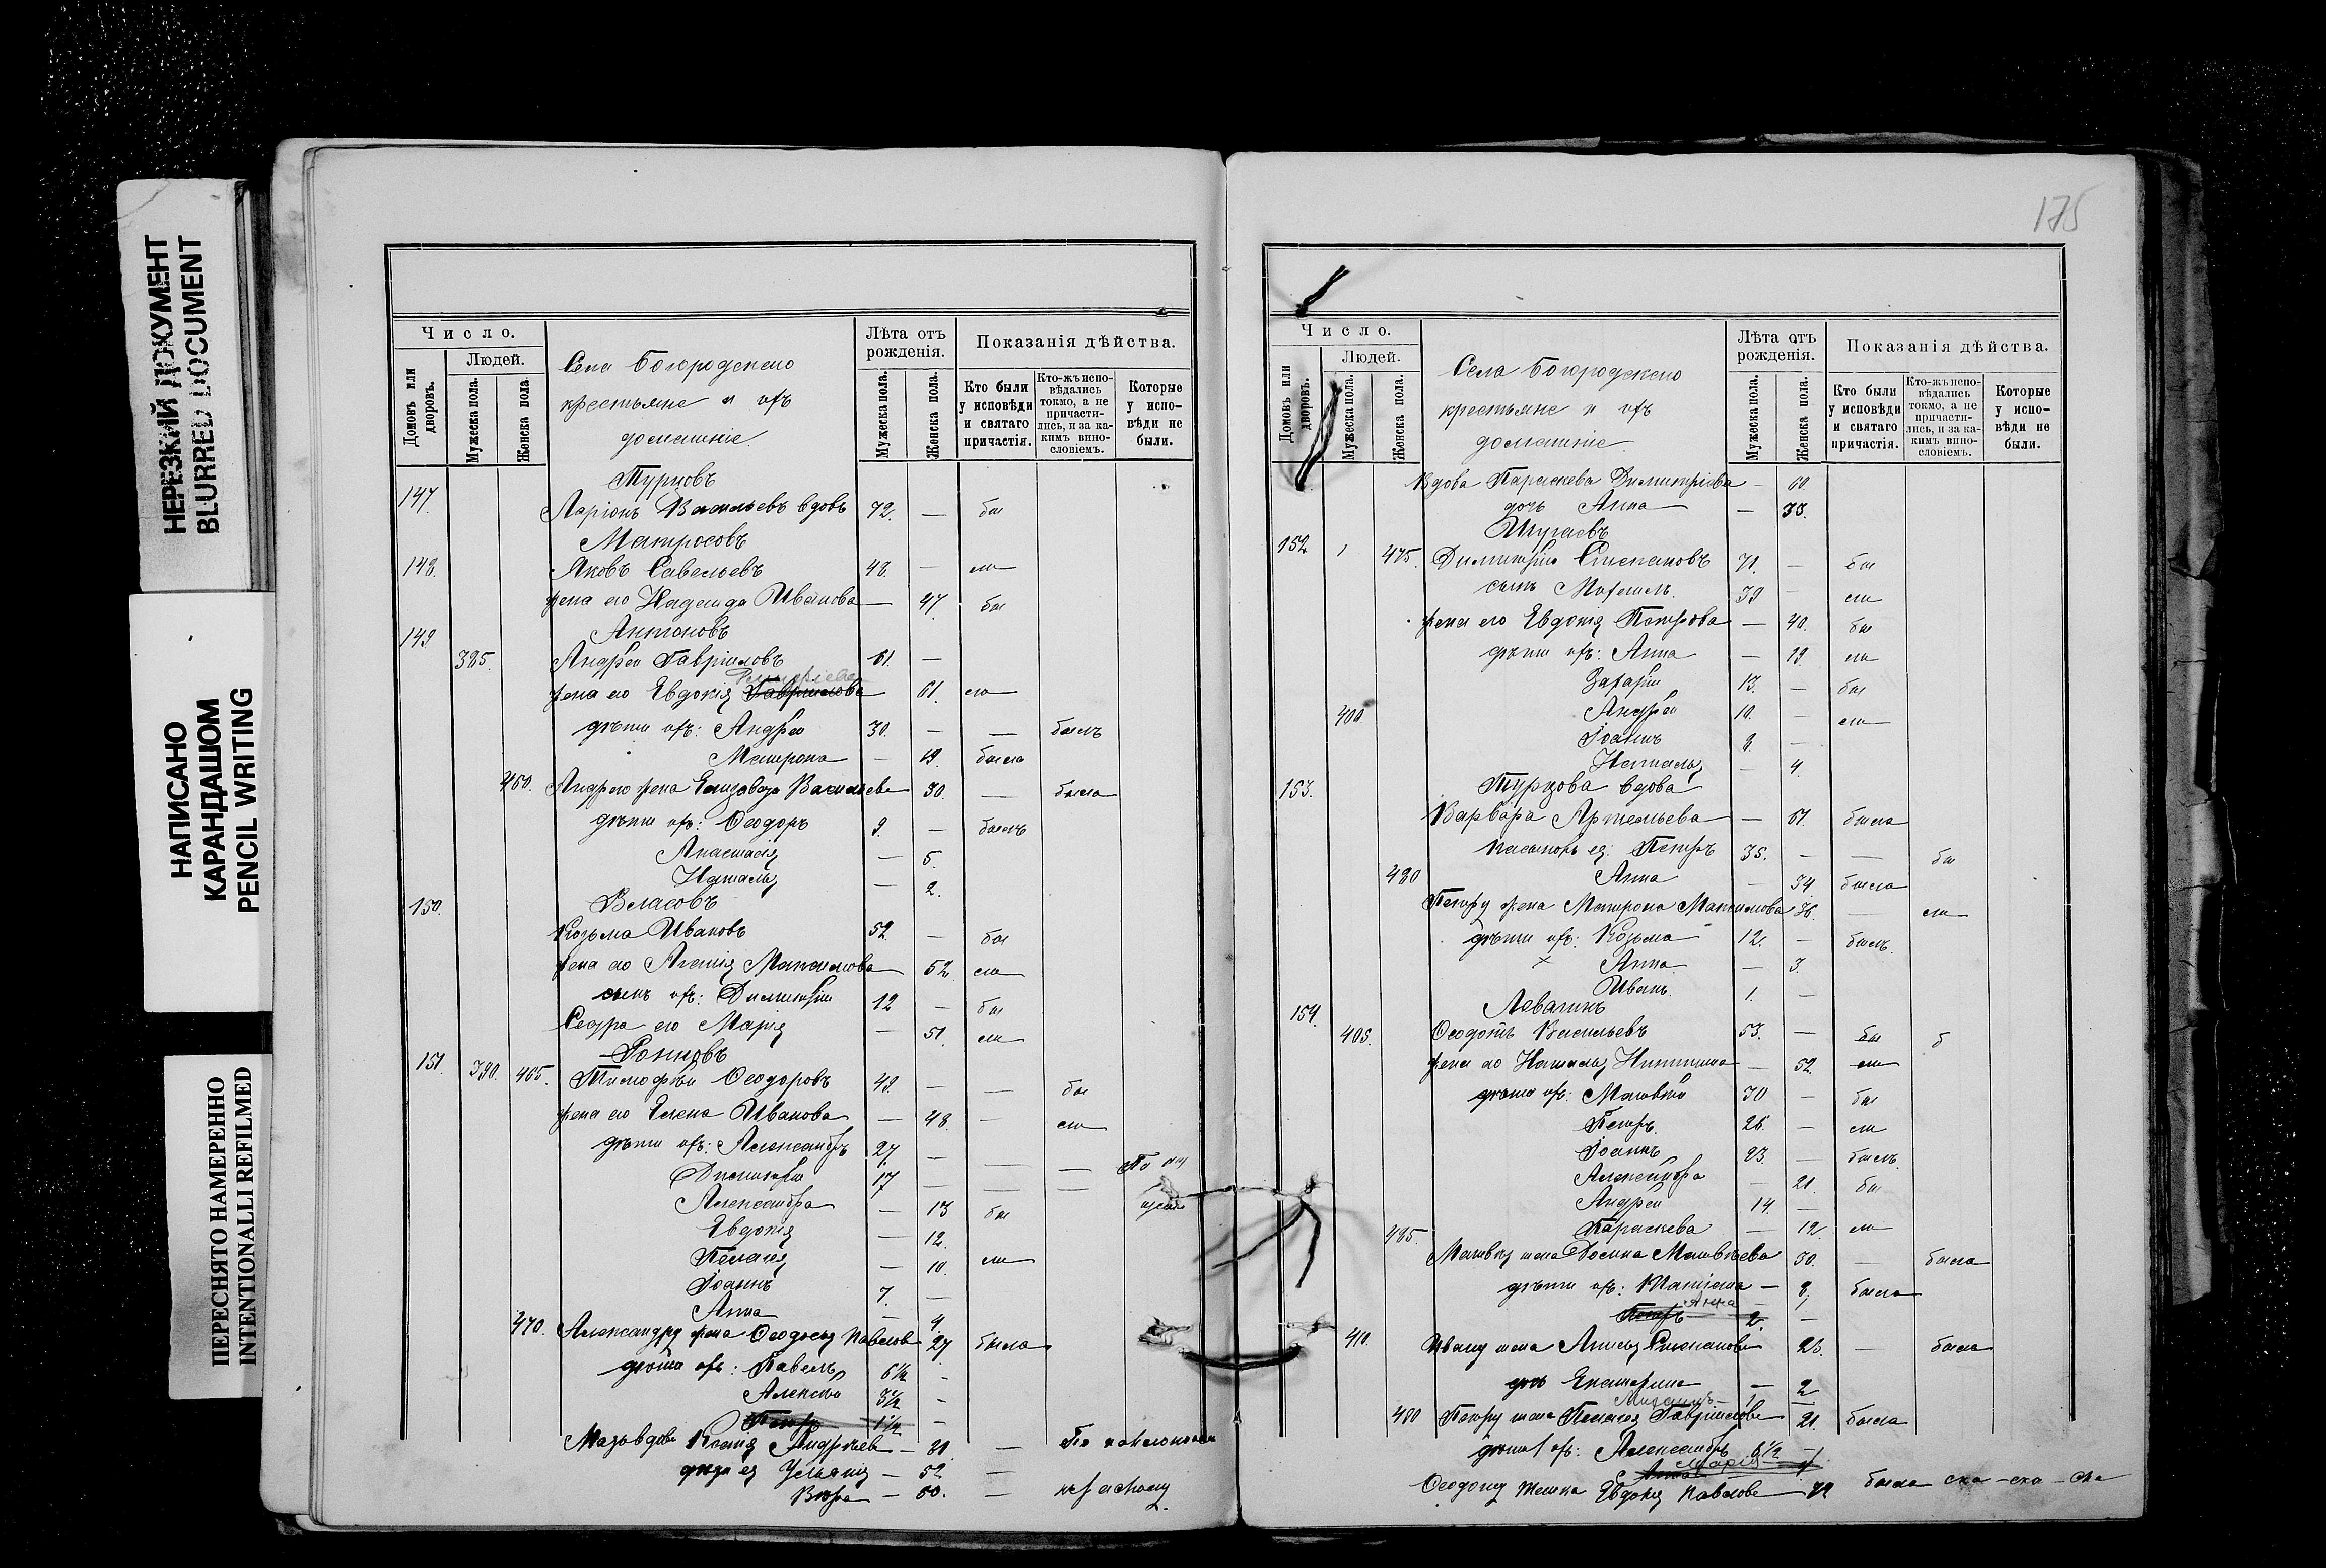 НЕРЕЗКИЙ ДОКУМЕНТ
BLURRED DOCUMENT
НАПИСАНО
КАРАНДАШОМ
PENCIL WRITING
ПЕРЕСНЯТО НАМЕРЕННО
INTENTIONALLI REFILMED
Число.
Людей.
Домовъ или дворовъ.
Мужеска пола.
Женска пола.
Села Богородскаго
крестьяне и ихъ
домашніе.
Лѣта отъ рожденія.
Мужеска пола.
Женска пола.
Показанія дѣйства.
Кто были у исповѣди и святаго причастія.
Кто-жъ исповѣдались токмо, а не причастились, и за какимъ винословіемъ.
Которые у исповѣди не были.
147. Турковъ
Ларіонъ Васильевъ вдовъ 72. — бы
Матросовъ
148. Яковъ Савельевъ 48. — ли
жена его Надежда Иванова — 47. бы
149 Антоновъ
385. Андрей Гавріиловъ 61. —
жена его Евдокія Гавриилова — 61. ли
дѣти ихъ: Андрей 30. — — былъ
Матрона — 19. была
460. Андрею жена Елизавета Васильева 30. — была
дѣти ихъ: Ѳеодоръ 9. — былъ
Анастасія — 5.
Наталья — 2.
150. Власовъ
Козьма Ивановъ 52. — бы
жена его Агафія Максимова 52 ли
сынъ ихъ: Димитрій 12 — бы
Сестра его Марія — 51. ли
151. 390. 465.
Тимофей Ѳеодоровъ 49. — — бы
жена его Елена Иванова — 48. — ли
дѣти ихъ: Александръ 27. — — —
Димитрій 17 — — —
Александра — 13 бы
Евдокія — 12.
Пелагія — 10. ли
Іоаннъ 7. —
Анна — 4
470. Александру жена Ѳеодосья Павлова 27 была
дѣти ихъ: Павелъ 6½ —
Алексѣй 3½ —
Петръ 1½ —
вдова Ксенія Андреева — 81. —
Ульянія — 52 —
Вѣра — 50. —
175
Число.
Людей.
Домовъ или дворовъ.
Мужеска пола.
Женска пола.
Села Богородскаго
крестьяне и ихъ
домашніе.
Лѣта отъ рожденія.
Мужеска пола.
Женска пола.
Показанія дѣйства.
Кто были у исповѣди и святаго причастія.
Кто-жъ исповѣдались токмо, а не причастились, и за какимъ винословіемъ.
Которые у исповѣди не были.
Вдова Параскева Димитріева — 60.
дочь Анна — 38.
152 475. Димитрій Степановъ 71. — бы
сынъ Михаилъ 39 — ли
жена его Евдокія Петрова — 40. бы
дѣти ихъ: Анна — 19. ли
Захарій 13. — бы
400 Андрей 10. — ли
Іоаннъ 8. —
Наталья — 4.
153. Туркова вдова
Варвара Артемьева — 61. была
Петръ 35. — — бы
480 Анна — 34 была
Петру жена Матрона Максимова 36. — ли
дѣти ихъ: Козьма 12. — былъ.
Анна — 3.
Иванъ 1. —
154.
405. Ѳеодотъ Васильевъ 53. — бы б
жена его Наталья Никитина — 52. ли
дѣти ихъ: Матвѣй 30 — бы
Петръ 26. — ли
Іоаннъ 23. — былъ.
Александра — 21. бы
Андрей 14. —
485. Параскева — 12. ли
Матвѣя жена Матвѣева 30. — была
дѣти ихъ: Татіана — 8. была
Анна
Петръ 2. —
410. Ивану жена Анисья Степанова 23. — была
дочь Екатерина — 2
490 Петру жена Пелагія Гавріилова 21. была
дѣти ихъ: Александръ 6½
Марія
Ѳеодоту Евдокія Павлова 72 была